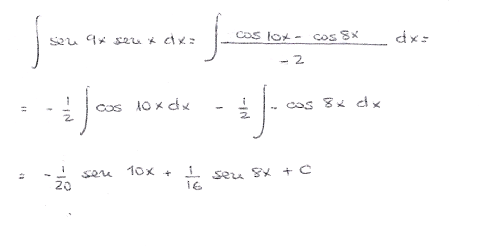 ∫ sen 9x sen x dx = ∫ (cos 10x - cos 8x)/(-2) dx =
= - 1/2 ∫ cos 10x dx - 1/2 ∫ - cos 8x dx
= - 1/20 sen 10x + 1/16 sen 8x + C